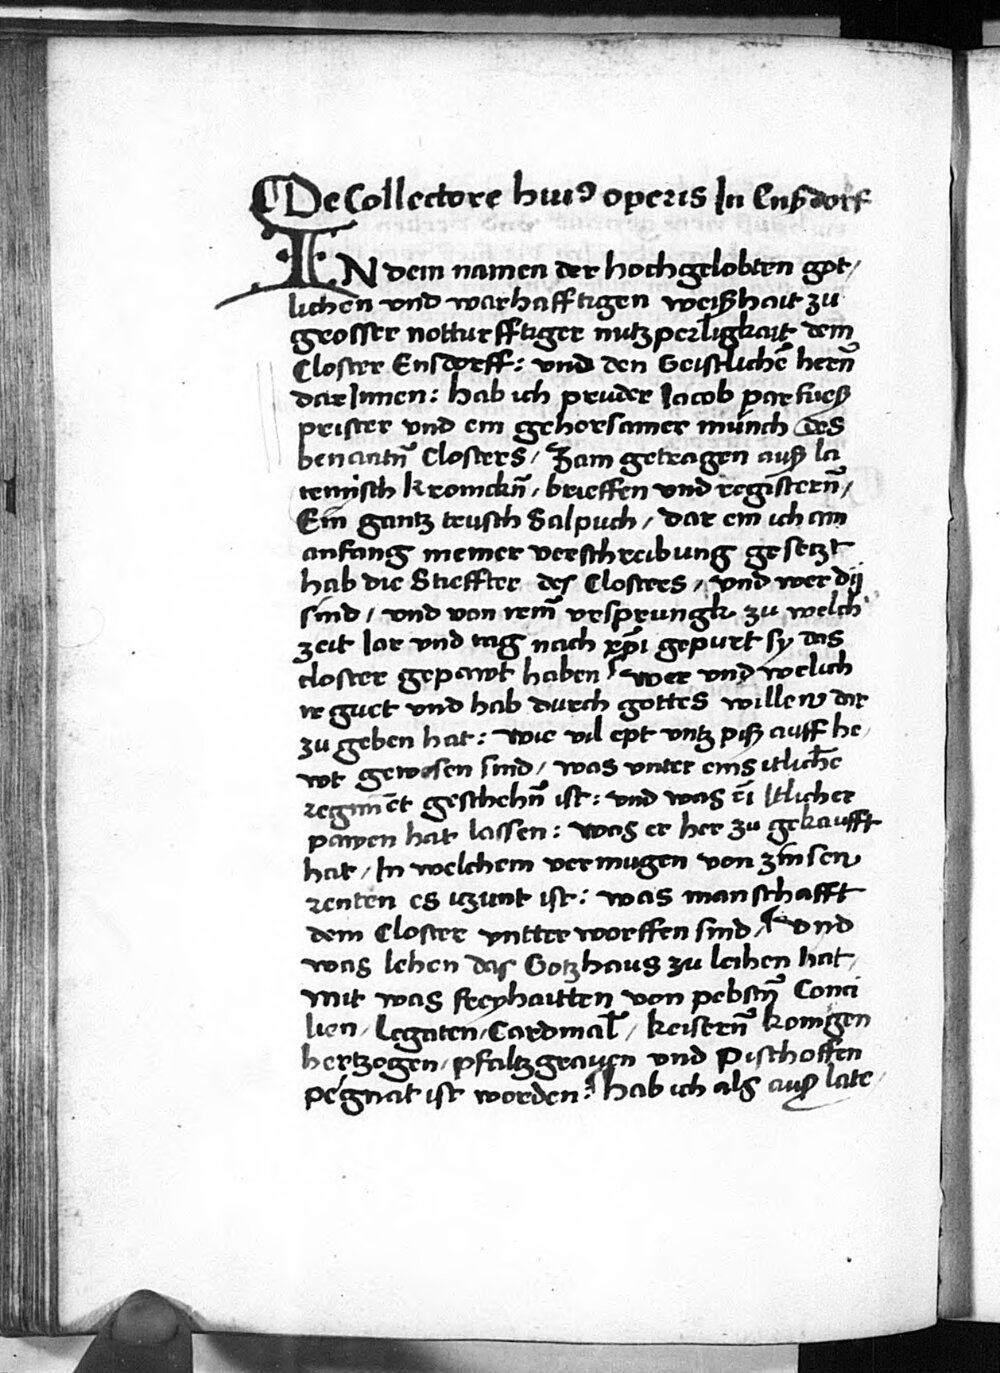 De Collectore huiꝰ operis In Enßdorf
IN dem namen der hochgelobten got/
lichen vnd warhafftigen weißhait zu
grosser notturfftiger nutzperligkait dem
Closter Ensdorff: vnd den Geistlichē herñ
darInnen: hab ich pruder Iacob parfueß
prister vnd ein gehorsamer münch des
benantñ Closters/ Zam getragen auß la
teinisch kronickñ/ brieffen vnd registerñ/
Ein gantz teusch Salpuch/ dar ein ich am
anfang meiner verschreibung gesetzt
hab die Stieffter des Closters/ vnd wer dij
sind/ vnd von irem̄ vrsprungk zu welch
zeit Iar vnd tag nach xp̄i gepurt sy das
closter gepawt haben/ wer vnd welich
ir guet vnd hab durch gottes willen dar
zu geben hat: wie vil ept vntz piß auff he/
wt gewesen sind/ was vnter eins itlichē
regimēt geschehñ ist: vnd was ēi Itlicher
pawen hat lassen: was er her zu gekaufft
hat/ In welchem vermugen von zinsen
renten es iczunt ist: was manschafft
dem Closter vntterworffen sind/ vnd
was lehen das Gotzhaus zu leihen hat/
Mit was freyhaitten von pebstñ Conci
lien/ Legaten/ Cardinal̄/ keisterñ konigen
hertzogen/ pfaltzgrauen vnd Pischoffen
pegnat ist worden: hab ich als auß late/